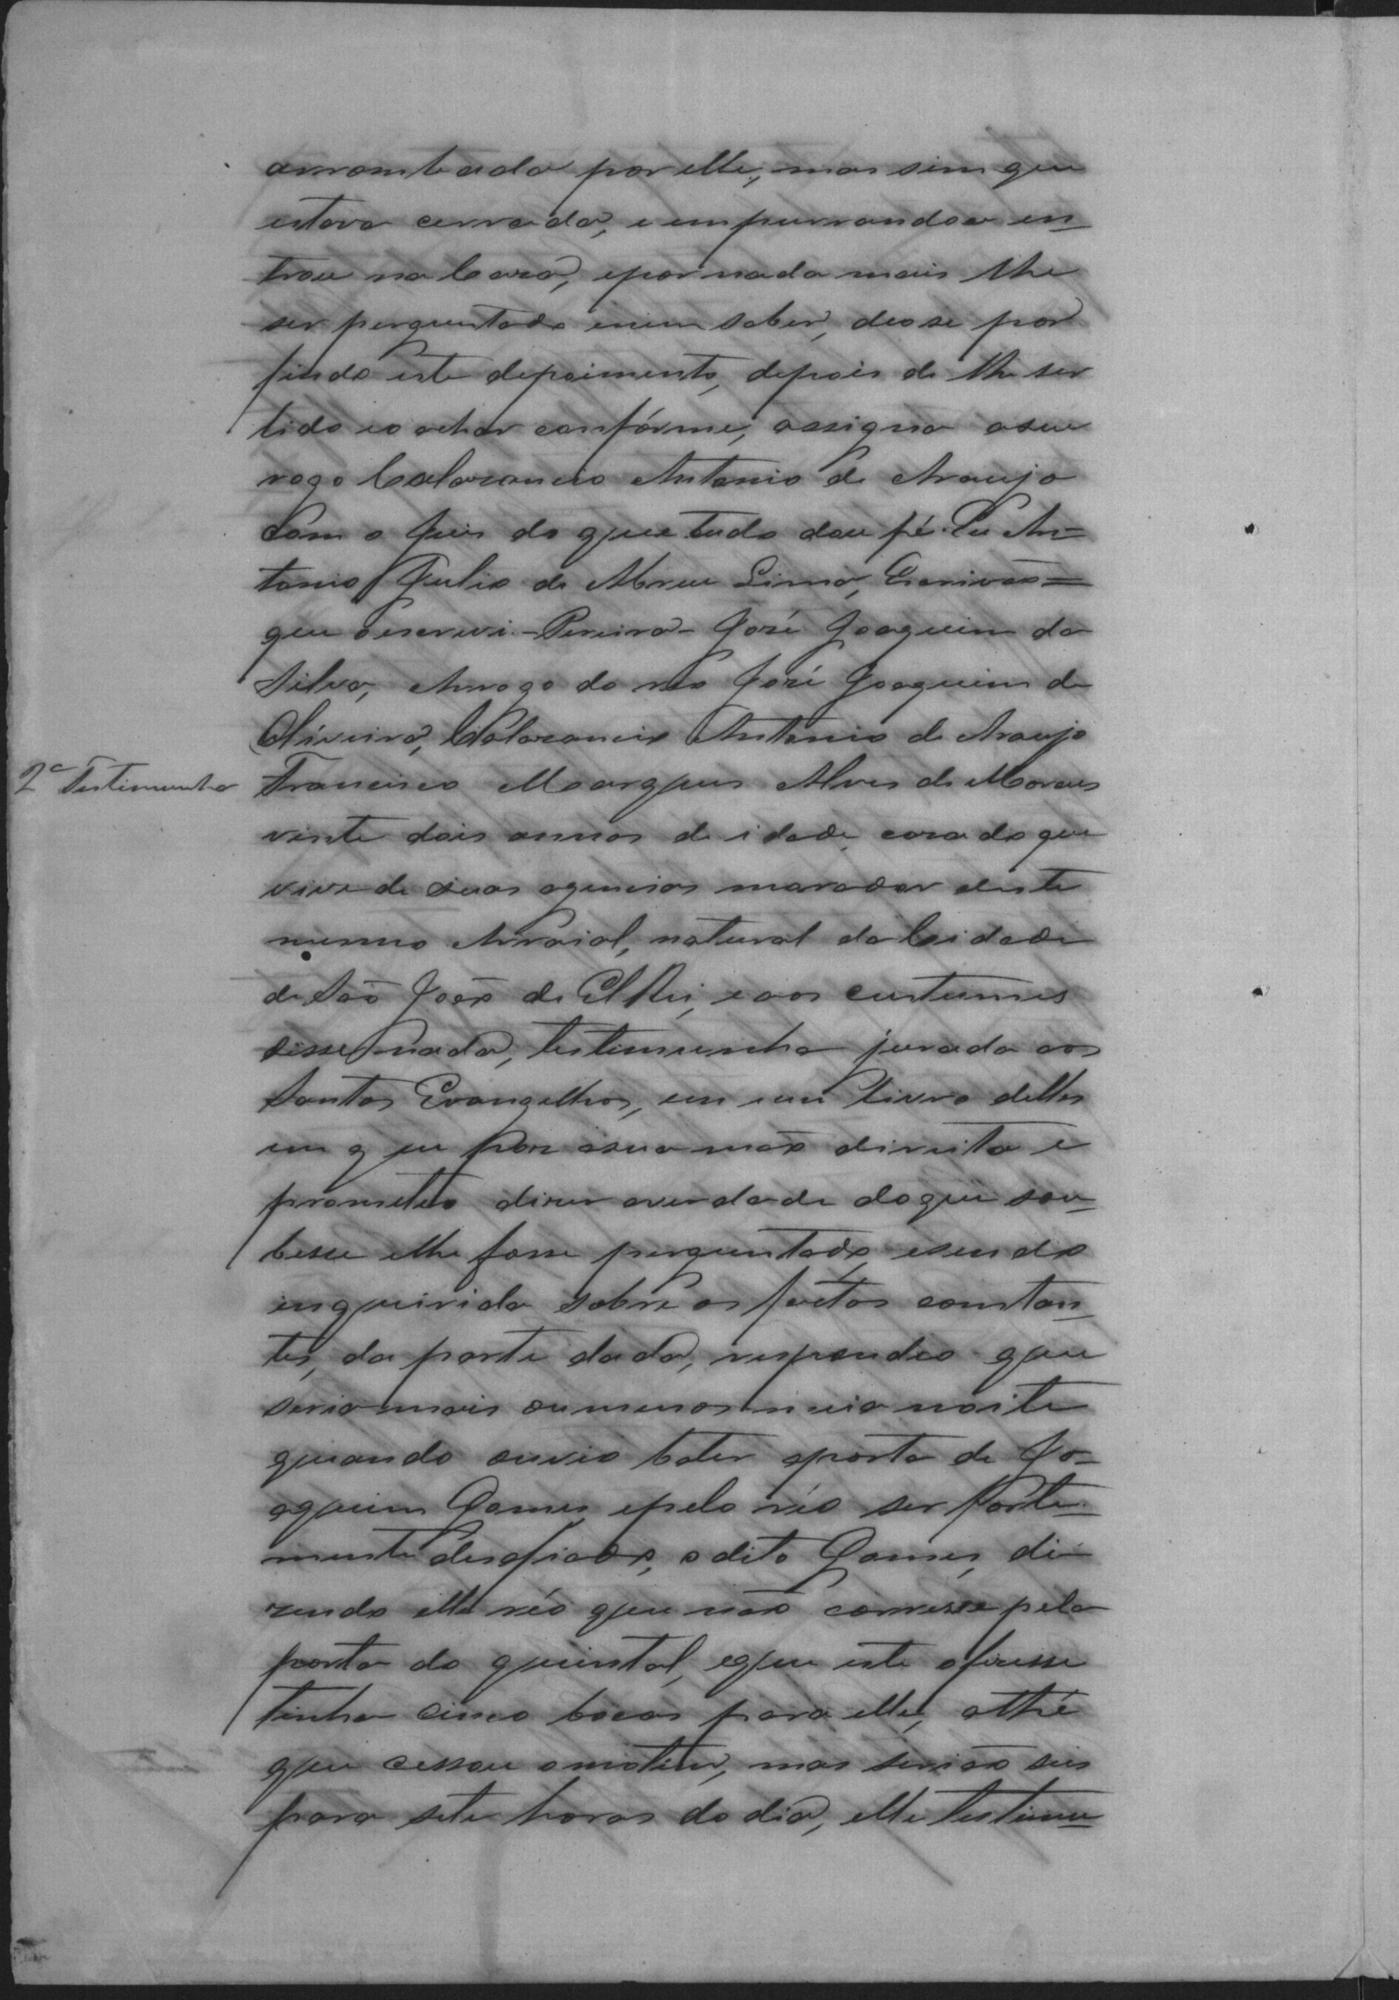 arrombada por elle, mas sim que
estava cerrada, e empurrandoa en-
trou na Caza, epor nada mais lhe
ser perguntado enem saber, deose por
findo este depoimento, depois de lhe ser
lido eo achar confórme, assigna aseu
rogo Calazancio Antonio de Araujo
Com o Juis do que tudo dou fé. Eu An=
tonio Julio de Abreu Lima, Escrivão=
que o escrevi - Pereira - José Joaquim da
Silva, Arrogo do reo José Joaquim de
Oliveira, Calazancio Antonio de Araujo
2ª Testimunha
Francisco Marques Alves de Moraes
vinte dois annos de idade, cazado que
vive de suas agencias morador deste
mesmo Arraial, natural da Cidade
de São João de El Rei, e aos custumes
disse nada, testimunha jurada aos
Santos Evangelhos, em um livro delles
em que poz asua mão direita e
prometeo dizer averdade do que sou-
besse elhe fosse perguntado, esendo
enquirida sobre os factos constan-
tes, da parte dada, respondeo que
seria mais oumenos meia noite
quando ouvio bater aporta de Jo-
aquim Gomes, epelo réo ser forte-
mente desafiado, o dito Gomes, di-
zendo elle réo que não corresse pela
porta do quintal, eque este ofizesse
tinha cinco bocas para elle, athé
que cessou omotim, mas serião seis
para sete horas do dia, elle testimu-